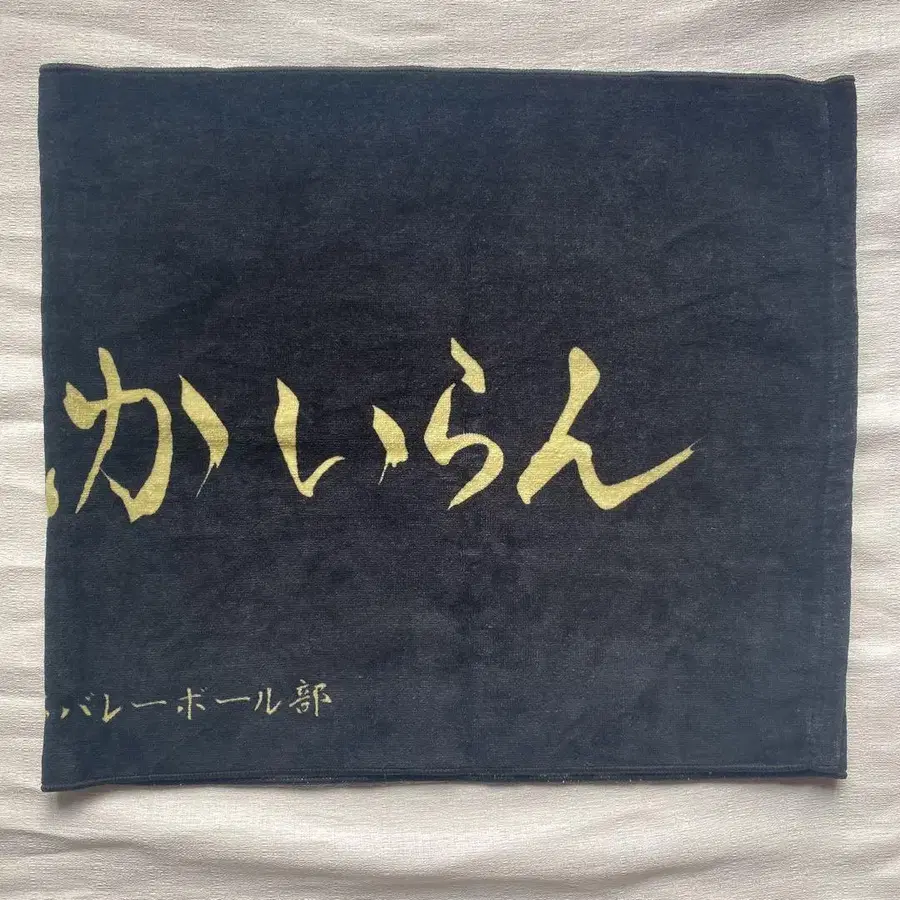 かいらん
バレーボール部